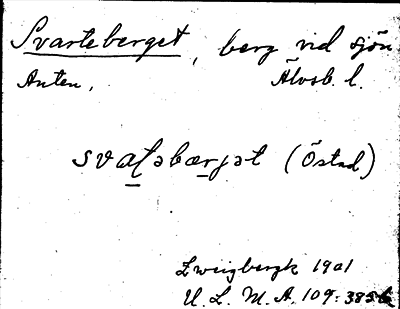 Svarteberget, berg vid sjön
Anten, Älvsb. l.
svaʈəbærjət (Östad)
Zweigbergk 1901
U. L. M. A. 109: 385